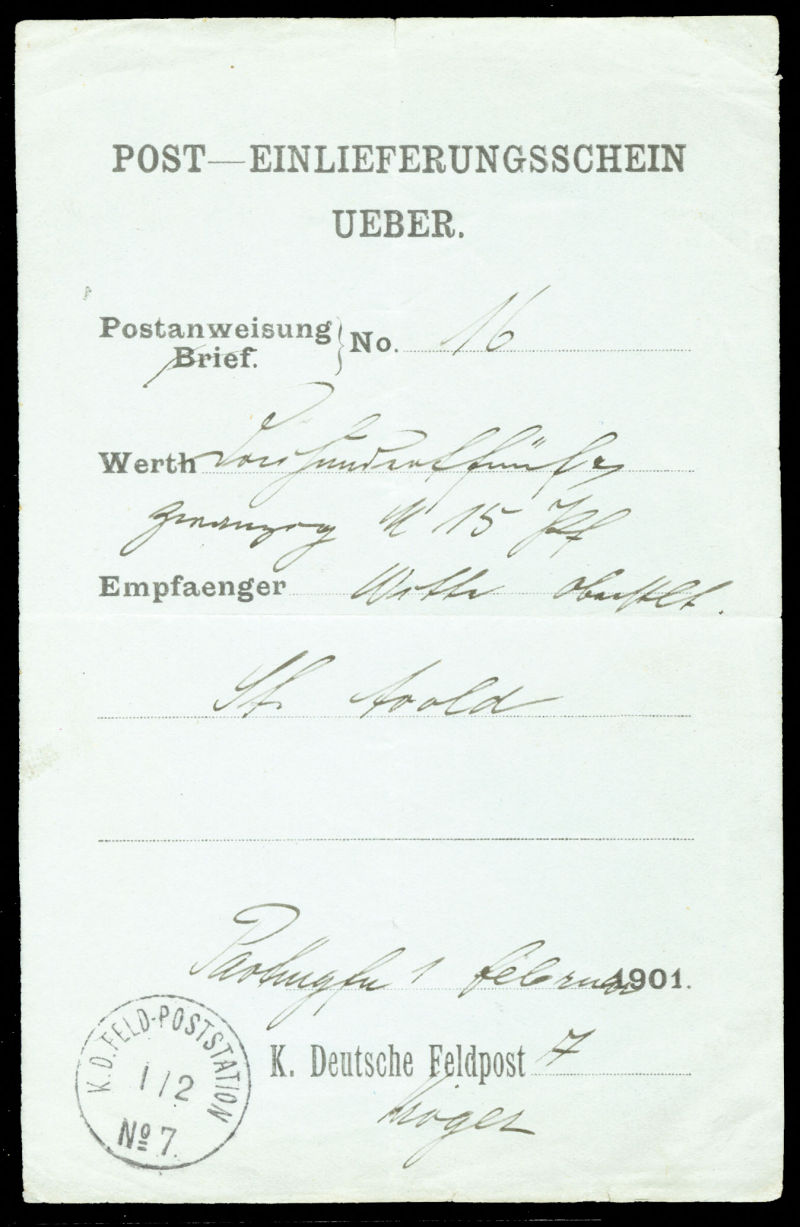 POST—EINLIEFERUNGSSCHEIN
UEBER.
Postanweisung
Brief.
No. 16
Werth Dreihundertfünf
zwanzig M 15 Pf
Empfaenger Witte Oberstlt.
St. Avold
Paotingfu 1 Februar 1901.
K. Deutsche Feldpost 7
K.D. FELD-POSTSTATION
1/2
No 7.